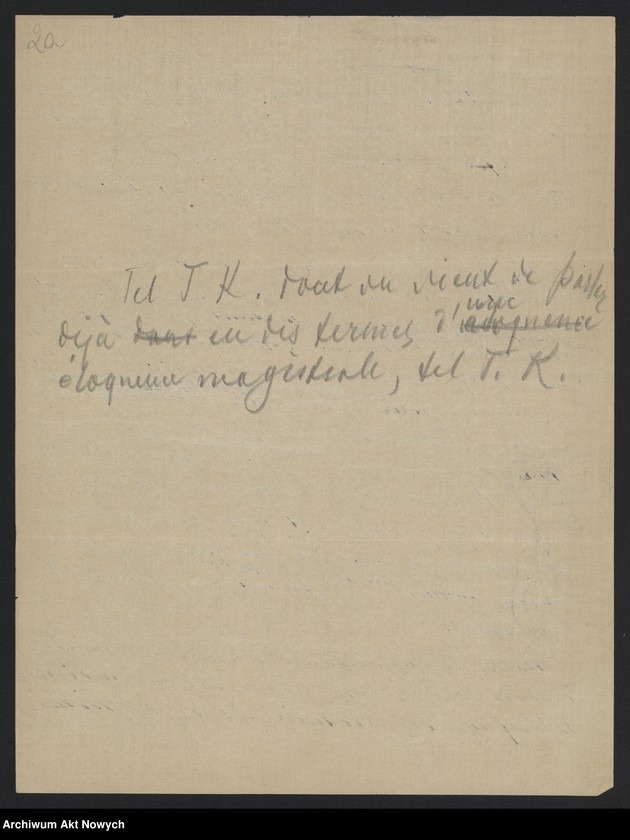 2a
Tel T. K. dont on vient de parler
déjà dans en des termes d'une eloquence
éloquence magistrale, tel T. K.
Archiwum Akt Nowych